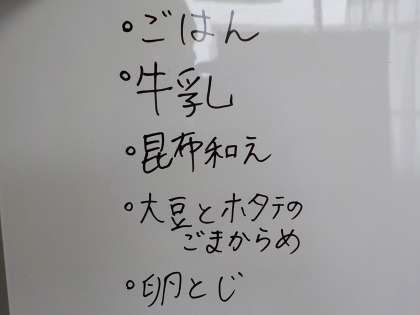 。ごはん
。牛乳
。昆布和え
。大豆とホタテの
ごまからめ
。卵とじ